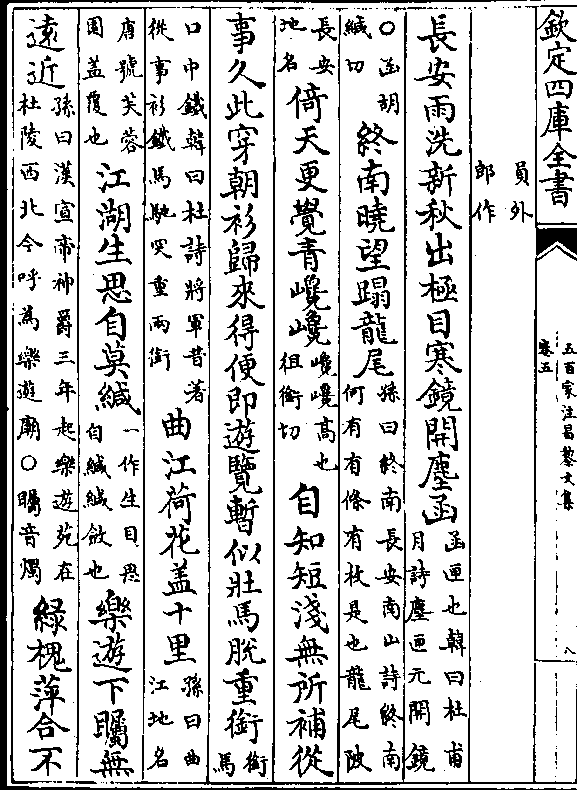 欽定四庫全書
五百家注昌黎文集
卷五
八
員外
郎作
長安雨洗新秋出極目寒鏡開塵函
函匣也韓曰杜甫
月詩塵匣元開鏡
○函胡
緘切
終南曉望蹋龍尾
孫曰終南長安南山詩終南
何有有條有枚是也龍尾陂
長安
地名
倚天更覺青巉巉
巉巉高也
徂銜切
自知短淺無所補從
事久此穿朝衫歸來得便即遊覽暫似壯馬脫重銜
銜
馬
口中鐵韓曰杜詩將軍昔著
從事衫鐵馬馳突重兩銜
曲江荷花盖十里
孫曰曲
江地名
唐號芙蓉
園盖覆也
江湖生思自莫緘
一作生目思
自緘緘斂也
樂遊下矚無
遠近
孫曰漢宣帝神爵三年起樂遊苑在
杜陵西北今呼為樂遊廟○矚音燭
綠槐萍合不